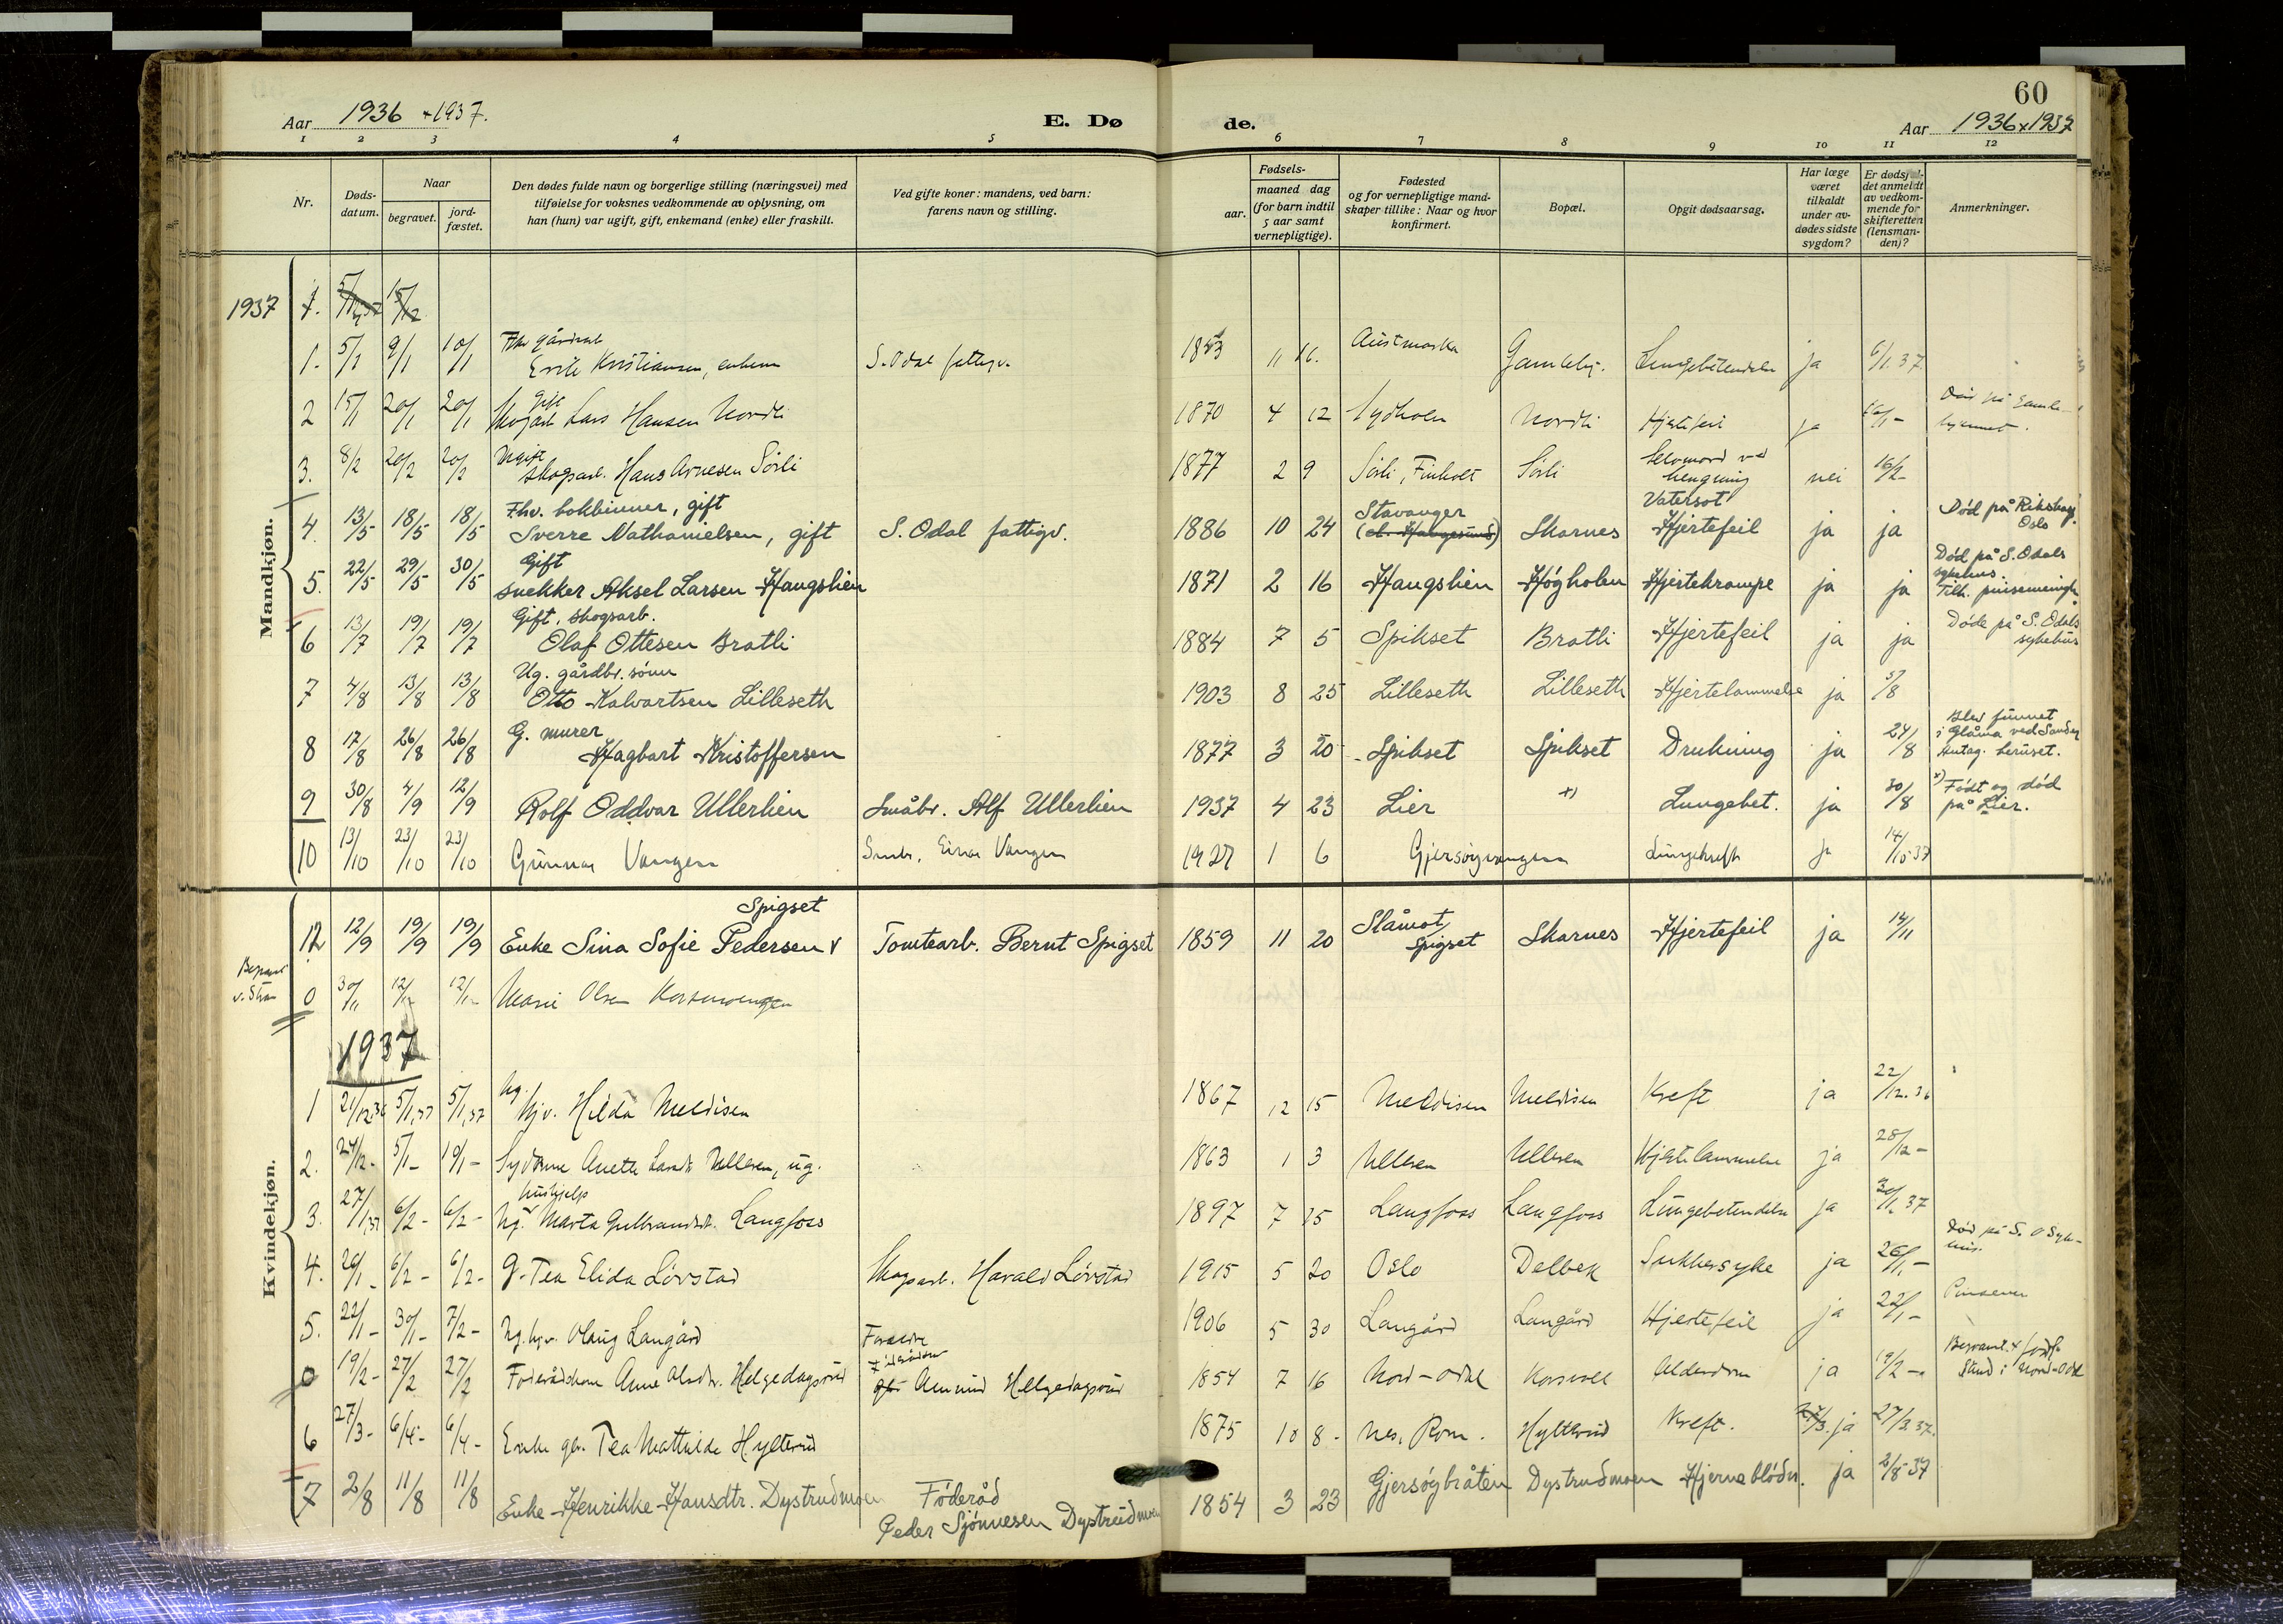 60
Aar 1936 + 1937.
E. Dø de.
Aar 1936 x 1937
1 2 3 4 5 6 7 8 9 10 11 12
Nr.
Døds-
datum.
Naar
begravet.
jord-
fæstet.
Den dødes fulde navn og borgerlige stilling (næringsvei) med
tilføielse for voksnes vedkommende av oplysning, om
han (hun) var ugift, gift, enkemand (enke) eller fraskilt.
Ved gifte koner: mandens, ved barn:
farens navn og stilling.
Fødsels-
aar.
maaned dag
(for barn indtil
5 aar samt
vernepligtige).
Fødested
og for vernepligtige mand-
skaper tillike: Naar og hvor
konfirmert.
Bopæl.
Opgit dødsaarsag.
Har læge
været
tilkaldt
under av-
dødes sidste
sygdom?
Er dødsfal-
det anmeldt
av vedkom-
mende for
skifteretten
(lensman-
den)?
Anmerkninger.
Mandkjøn.
1937
1. 5/1 9/1 10/1 Kristiansen, S. Odal 11 16. Austmarka ja 6/1.37.
2 15/1 20/1 20/1 gift Lars Hansen Nordli 1870 4 12 Nordli Hjertefeil ja
3. 8/2 20/2 20/2 Ugift skogsarb. Hans Arnesen Sörli 1877 2 9 Sörli, Finholt Sörli Selvmord ved hengning nei 16/2-
4. 13/5 18/5 18/5 Fhv. bokbinner, gift
Sverre Nathanielsen, gift S. Odal fattigv. 1886 10 24 Stavanger Skarnes Vatersot Hjertefeil ja ja Död på Rikshosp. Oslo
5. 22/5 29/5 30/5 Gift
snekker Aksel Larsen Haugslien 1871 2 16 Haugslien Högholen Hjertekrampe ja ja Död på S. Odals sykehus. Tilh. pinsemenigh.
6 13/7 19/7 19/7 Gift, skogsarb.
Olaf Ottesen Bratli 1884 7 5 Spikset Bratli Hjertefeil ja ja Döde på S. Odals sykehus
7 4/8 13/8 13/8 Ug. gårdbr. sönn
Otto Kalvartsen Lilleseth 1903 8 25 Lilleseth Lilleseth Hjertelammelse ja 5/8
8 17/8 26/8 26/8 G. murer
Hagbart Kristoffersen 1877 3 20 Spikset Spikset Drukning ja 24/8 Blev funnet i Glåma ved Sander antag. beruset.
9 30/8 4/9 12/9 Rolf Oddvar Ullerlien Småbr. Alf Ullerlien 1937 4 23 Lier x) Lungebet. ja 30/8 x) Födt og död på Lier.
10 13/10 23/10 23/10 Gunnar Vangen Einar Vangen 1927 1 6 Gjersøgvangen ja 14/10-37
Kvindekjøn.
Spigset
12 12/9 19/9 19/9 Enke Sina Sofie Pedersen Tomtearb. Bernt Spigset 1859 11 20 Slåmot, Spigset Skarnes Hjertefeil ja 14/11
0 30/11 12/12 12/12 Marie Olsen
1937
1 21/12.36 5/1.37 5/1.37 Ug. hjv. Hilda Meldisen 1867 12 15 Meldisen Meldisen Kreft ja 22/12.36
2. 24/12- 5/1- 10/1- Anette Ullesen, ug. 1863 1 3 Ullesen Ullesen Hjertelammelse ja 28/12-
3. 27/1.37 6/2- 6/2- hushjelp
Ug. Marta Gulbrandsdt. Langfoss 1897 7 15 Langfoss Langfoss Lungebetendelse ja 30/1.37
4. 26/1- 6/2- 6/2- G. Tea Elida Lövstad Skogsarb. Harald Lövstad 1915 5 20 Oslo Delbek Sukkersyke ja 26/1- Död på S. O Syke-hus.
5. 22/1- 30/1- 7/2- Ug. hjv. Olaug Langård 1906 5 30 Langård Langård Hjertefeil ja 22/1-
0 19/2- 27/2 27/2 Föderådskone Anne Olsdtr. Helgedagsrud Amund Helgedagsrud 1854 7 16 Nord-Odal Alderdom ja 19/2- Begravet & jordf. i Nord-Odal
6 27/3- 6/4- 6/4- Enke Tea Mathilde Hylterud 1875 10 8- Nes, Rom. Hylterud Kreft. ja 27/3 37.
7 2/8 11/8 11/8 Enke Henrikke Hansdtr. Dystrudmoen Föderåd
Peder Sjönnesen Dystrudmoen 1854 3 23 Gjersøgbråten Dystrudmoen Hjerneblödn. ja 2/8-37